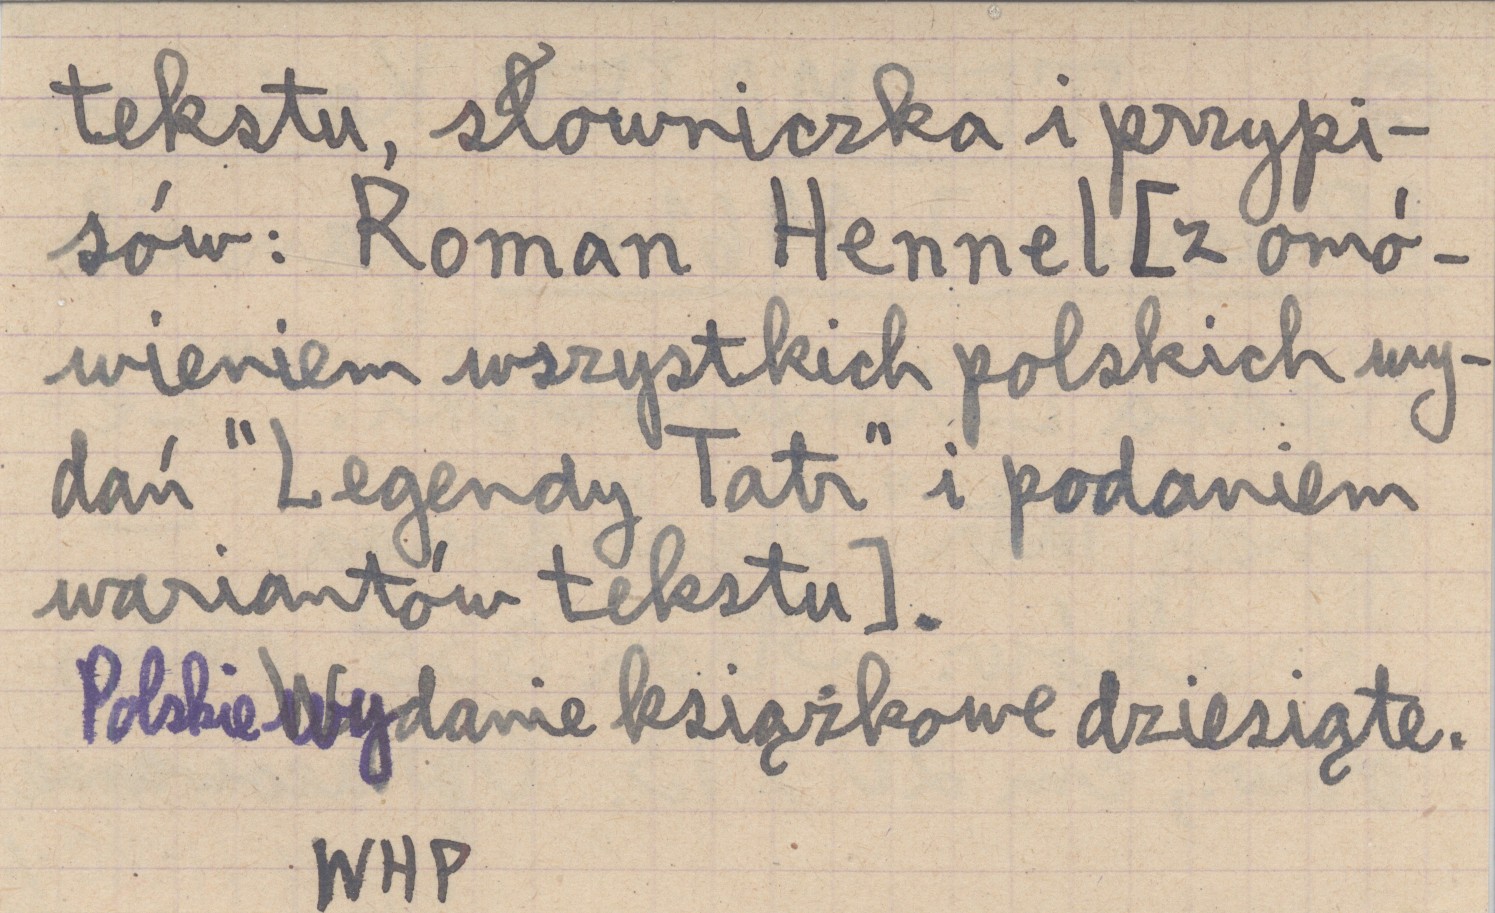 tekstu, słowniczka i przypi-
sów: Roman Hennel [z omó-
wieniem wszystkich polskich wy-
dań "Legendy Tatr" i podaniem
wariantów tekstu].
Polskie wydanie książkowe dziesiąte.
WHP